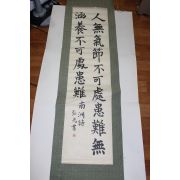 人無氣節不可處患難無
涵養不可處患難
南洲語